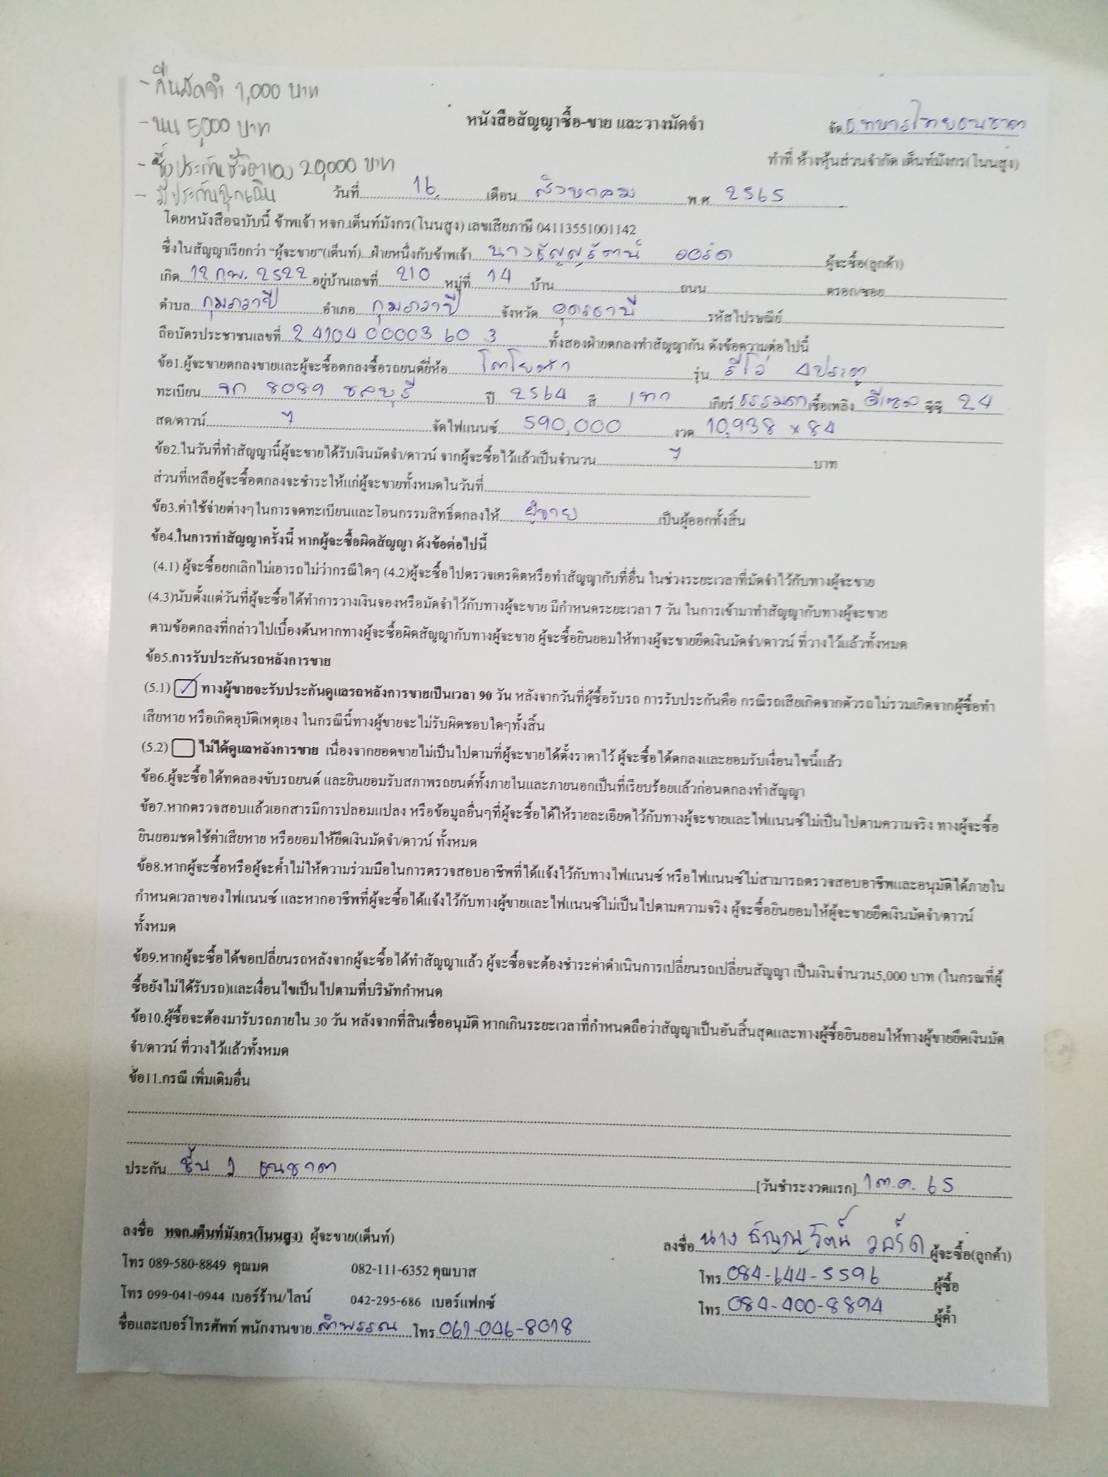 - คืนมัดจำ 1,000 บาท
- นน 5,000 บาท
- ซื้อประกันชีวิตเอง 20,000 บาท
- มีประกันฉุกเฉิน
หนังสือสัญญาซื้อ-ขาย และวางมัดจำ
จัด ธ.ทหารไทยธนชาต
ทำที่ ห้างหุ้นส่วนจำกัด เต็นท์มังกร(โนนสูง)
วันที่ 16 เดือน สิงหาคม พ.ศ 2565
โดยหนังสือฉบับนี้ ข้าพเจ้า หจก.เต็นท์มังกร(โนนสูง) เลขเสียภาษี 04113551001142
ซึ่งในสัญญาเรียกว่า "ผู้จะขาย"(เต็นท์)...ฝ่ายหนึ่งกับข้าพเจ้า นางธัญญรัตน์ วอร์ด ผู้จะซื้อ(ลูกค้า)
เกิด 12 กพ. 2522 อยู่บ้านเลขที่ 210 หมู่ที่ 14 บ้าน ถนน ตรอก/ซอย
ตำบล กุมภวาปี อำเภอ กุมภวาปี จังหวัด อุดรธานี รหัสไปรษณีย์
ถือบัตรประชาชนเลขที่ 2 4104 00003 60 3 ทั้งสองฝ่ายตกลงทำสัญญากัน ดังข้อความต่อไปนี้
ข้อ1.ผู้จะขายตกลงขายและผู้จะซื้อตกลงซื้อรถยนต์ยี่ห้อ โตโยต้า รุ่น รีโว่ 4ประตู
ทะเบียน 8089 ชลบุรี ปี 2564 สี เทา เกียร์ ธรรมดา เชื้อเพลิง ดีเซล ซีซี 2.4
สด/ดาวน์ จัดไฟแนนซ์ 590,000 งวด 10,938 x 84
ข้อ2.ในวันที่ทำสัญญานี้ผู้จะขายได้รับเงินมัดจำ/ดาวน์ จากผู้จะซื้อไว้แล้วเป็นจำนวน บาท
ส่วนที่เหลือผู้จะซื้อตกลงจะชำระให้แก่ผู้จะขายทั้งหมดในวันที่
ข้อ3.ค่าใช้จ่ายต่างๆในการจดทะเบียนและโอนกรรมสิทธิ์ตกลงให้ ผู้ขาย เป็นผู้ออกทั้งสิ้น
ข้อ4.ในการทำสัญญาครั้งนี้ หากผู้จะซื้อผิดสัญญา ดังข้อต่อไปนี้
(4.1) ผู้จะซื้อยกเลิกไม่เอารถไม่ว่ากรณีใดๆ (4.2)ผู้จะซื้อไปตรวจเครดิตหรือทำสัญญากับที่อื่น ในช่วงระยะเวลาที่มัดจำไว้กับทางผู้จะขาย
(4.3)นับตั้งแต่วันที่ผู้จะซื้อได้ทำการวางเงินจองหรือมัดจำไว้กับทางผู้จะขาย มีกำหนดระยะเวลา 7 วัน ในการเข้ามาทำสัญญากับทางผู้จะขาย
ตามข้อตกลงที่กล่าวไปเบื้องต้นหากทางผู้จะซื้อผิดสัญญากับทางผู้จะขาย ผู้จะซื้อยินยอมให้ทางผู้จะขายยึดเงินมัดจำ/ดาวน์ ที่วางไว้แล้วทั้งหมด
ข้อ5.การรับประกันรถหลังการขาย
(5.1) ทางผู้ขายจะรับประกันดูแลรถหลังการขายเป็นเวลา 90 วัน หลังจากวันที่ผู้ซื้อรับรถ การรับประกันคือ กรณีรถเสียเกิดจากตัวรถไม่รวมเกิดจากผู้ซื้อทำ
เสียหาย หรือเกิดอุบัติเหตุเอง ในกรณีนี้ทางผู้ขายจะไม่รับผิดชอบใดๆทั้งสิ้น
(5.2) ไม่ได้ดูแลหลังการขาย เนื่องจากยอดขายไม่เป็นไปตามที่ผู้จะขายได้ตั้งราคาไว้ ผู้จะซื้อได้ตกลงและยอมรับเงื่อนไขนี้แล้ว
ข้อ6.ผู้จะซื้อได้ทดลองขับรถยนต์ และยินยอมรับสภาพรถยนต์ทั้งภายในและภายนอกเป็นที่เรียบร้อยแล้วก่อนตกลงทำสัญญา
ข้อ7.หากตรวจสอบแล้วเอกสารมีการปลอมแปลง หรือข้อมูลอื่นๆที่ผู้จะซื้อได้ให้รายละเอียดไว้กับทางผู้จะขายและไฟแนนซ์ไม่เป็นไปตามความจริง ทางผู้จะซื้อ
ยินยอมชดใช้ค่าเสียหาย หรือยอมให้ยึดเงินมัดจำ/ดาวน์ ทั้งหมด
ข้อ8.หากผู้จะซื้อหรือผู้จะค้ำไม่ให้ความร่วมมือในการตรวจสอบอาชีพที่ได้แจ้งไว้กับทางไฟแนนซ์ หรือไฟแนนซ์ไม่สามารถตรวจสอบอาชีพและอนุมัติได้ภายใน
กำหนดเวลาของไฟแนนซ์ และหากอาชีพที่ผู้จะซื้อได้แจ้งไว้กับทางผู้ขายและไฟแนนซ์ไม่เป็นไปตามความจริง ผู้จะซื้อยินยอมให้ผู้จะขายยึดเงินมัดจำ/ดาวน์
ทั้งหมด
ข้อ9.หากผู้จะซื้อได้ขอเปลี่ยนรถหลังจากผู้จะซื้อได้ทำสัญญาแล้ว ผู้จะซื้อจะต้องชำระค่าดำเนินการเปลี่ยนรถเปลี่ยนสัญญา เป็นเงินจำนวน5,000 บาท (ในกรณีที่ผู้
ซื้อยังไม่ได้รับรถ)และเงื่อนไขเป็นไปตามที่บริษัทกำหนด
ข้อ10.ผู้ซื้อจะต้องมารับรถภายใน 30 วัน หลังจากที่สินเชื่ออนุมัติ หากเกินระยะเวลาที่กำหนดถือว่าสัญญาเป็นอันสิ้นสุดและทางผู้ซื้อยินยอมให้ทางผู้ขายยึดเงินมัด
จำ/ดาวน์ ที่วางไว้แล้วทั้งหมด
ข้อ11.กรณี เพิ่มเติมอื่น
ประกัน ชั้น 1 ธนชาต [วันชำระงวดแรก] 1 ต.ค. 65
ลงชื่อ หจก.เต็นท์มังกร(โนนสูง) ผู้จะขาย(เต็นท์)
ลงชื่อ นาง ธัญญรัตน์ วอร์ด ผู้จะซื้อ(ลูกค้า)
โทร 089-580-8849 คุณมด 082-111-6352 คุณบาส
โทร 084-644-5596 ผู้ซื้อ
โทร 099-041-0944 เบอร์ร้าน/ไลน์ 042-295-686 เบอร์แฟกซ์
โทร 084-400-8894 ผู้ค้ำ
ชื่อและเบอร์โทรศัพท์ พนักงานขาย ลำพรรณ โทร 061-046-8018